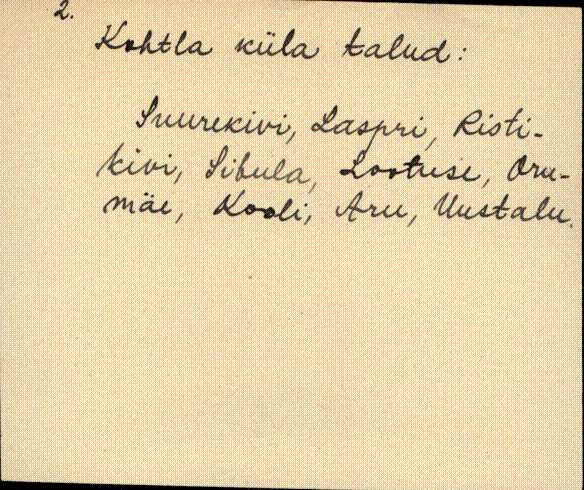 2.
Kohtla küla talud:
Suurekivi, Laspri, Risti-
kivi, Sibula, Lootuse, Oru-
mäe, Kooli, Aru, Uustalu.